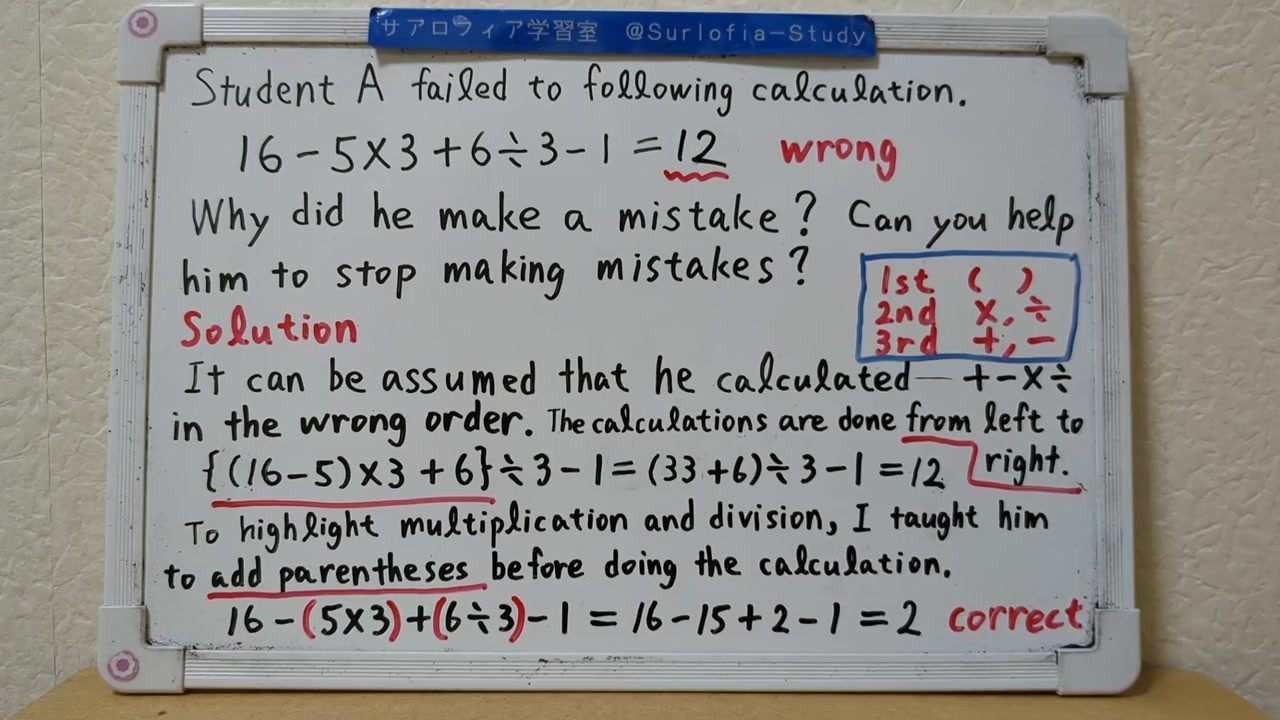 サアロフィア学習室 @Surlofia-Study
Student A failed to following calculation.
16-5×3+6÷3-1=12 wrong
Why did he make a mistake? Can you help
him to stop making mistakes?
1st ( )
2nd ×, ÷
3rd +, -
Solution
It can be assumed that he calculated +-×÷
in the wrong order. The calculations are done from left to
right.
{(16-5)×3+6}÷3-1=(33+6)÷3-1=12
To highlight multiplication and division, I taught him
to add parentheses before doing the calculation.
16-(5×3)+(6÷3)-1=16-15+2-1=2 correct